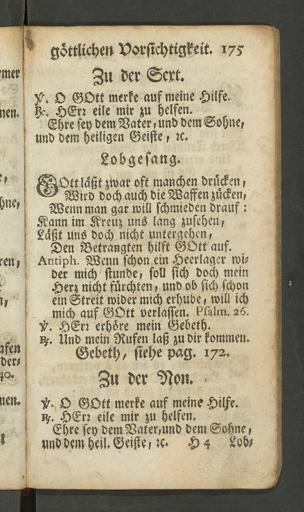 göttlichen Vorsichtigkeit. 175
Zu der Sext.
℣. O GOtt merke auf meine Hilfe.
℟. HErr eile mir zu helfen.
Ehre sey dem Vater, und dem Sohne,
und dem heiligen Geiste, ꝛc.
Lobgesang.
GOtt läßt zwar oft manchen drücken,
Wird doch auch die Waffen zücken,
Wenn man gar will schmieden drauf:
Kann im Kreuz uns lang zusehen,
Läßt uns doch nicht untergehen,
Den Betrangten hilft GOtt auf.
Antiph. Wenn schon ein Heerlager wi-
der mich stunde, soll sich doch mein
Herz nicht fürchten, und ob sich schon
ein Streit wider mich erhube, will ich
mich auf GOtt verlassen. Psalm. 26.
℣. HErr erhöre mein Gebeth.
℟. Und mein Rufen laß zu dir kommen.
Gebeth, siehe pag. 172.
Zu der Non.
℣. O GOtt merke auf meine Hilfe.
℟. HErr eile mir zu helfen.
Ehre sey dem Vater, und dem Sohne,
und dem heil. Geiste, ꝛc. H 4 Lob-